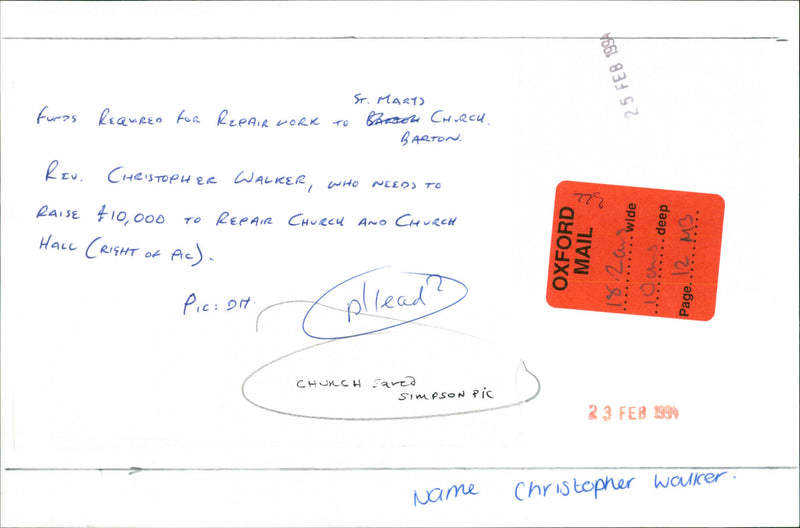 25 FEB 1994
ST. MARYS
FUNDS REQUIRED FOR REPAIR WORK TO BARTON CHURCH.
BARTON.
REV. CHRISTOPHER WALKER, WHO NEEDS TO
RAISE £10,000 TO REPAIR CHURCH AND CHURCH
HALL (RIGHT OF PIC).
PIC: DH
p/lead?
CHURCH saved
SIMPSON PIC
OXFORD
MAIL
18.2cms wide
10cms deep
Page 12 MB
23 FEB 1994
Name Christopher Walker.